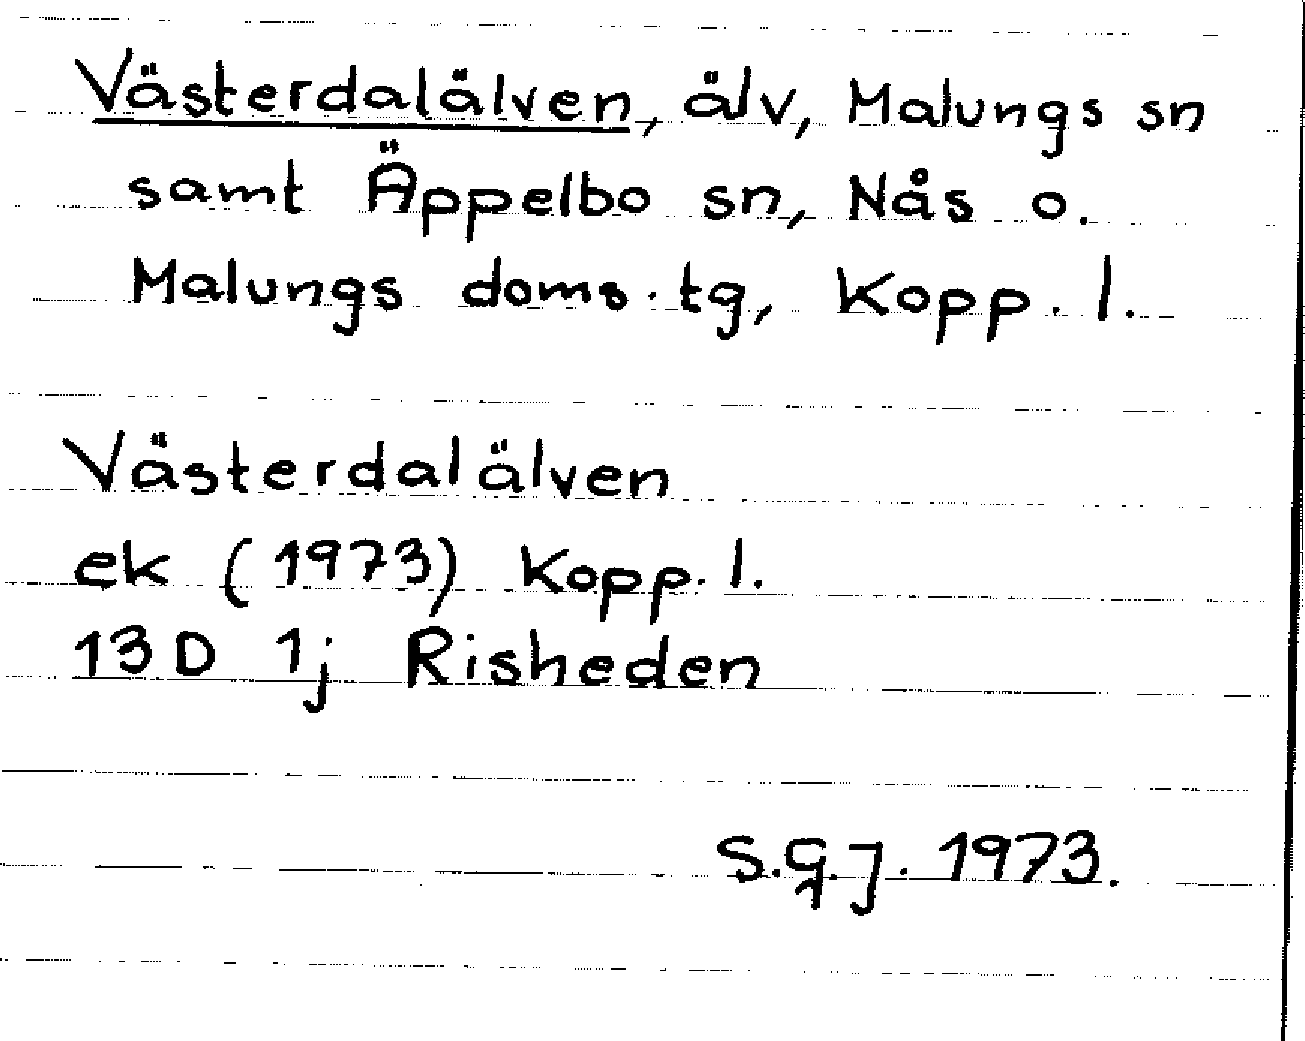 Västerdalälven, älv, Malungs sn
samt Äppelbo sn, Nås o.
Malungs doms. tg, Kopp. l.
Västerdalälven
ek (1973) Kopp. l.
13 D 1j Risheden
S.G.J. 1973.